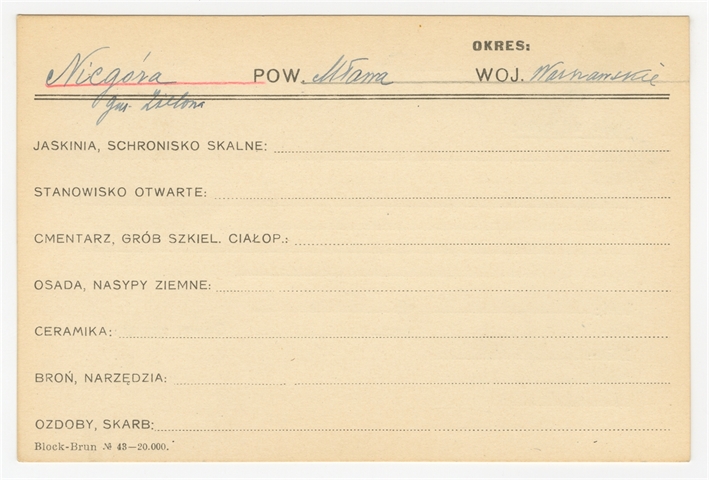 OKRES:
Nicgóra POW. Mława WOJ. Warszawskie
gm. Zielona
JASKINIA, SCHRONISKO SKALNE:
STANOWISKO OTWARTE:
CMENTARZ, GRÓB SZKIEL. CIAŁOP.:
OSADA, NASYPY ZIEMNE:
CERAMIKA:
BROŃ, NARZĘDZIA:
OZDOBY, SKARB:
Block-Brun № 43—20.000.